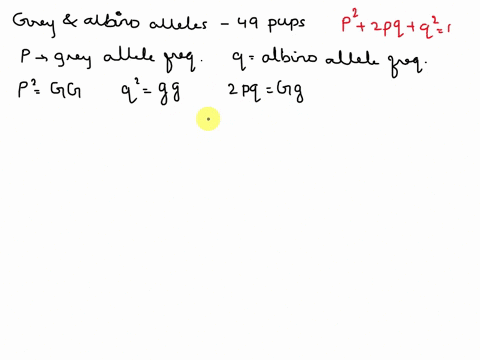 Grey & albino alleles - 49 pups p² + 2pq + q² = 1
P → grey allele freq. q = albino allele freq.
P² = GG q² = gg 2pq = Gg